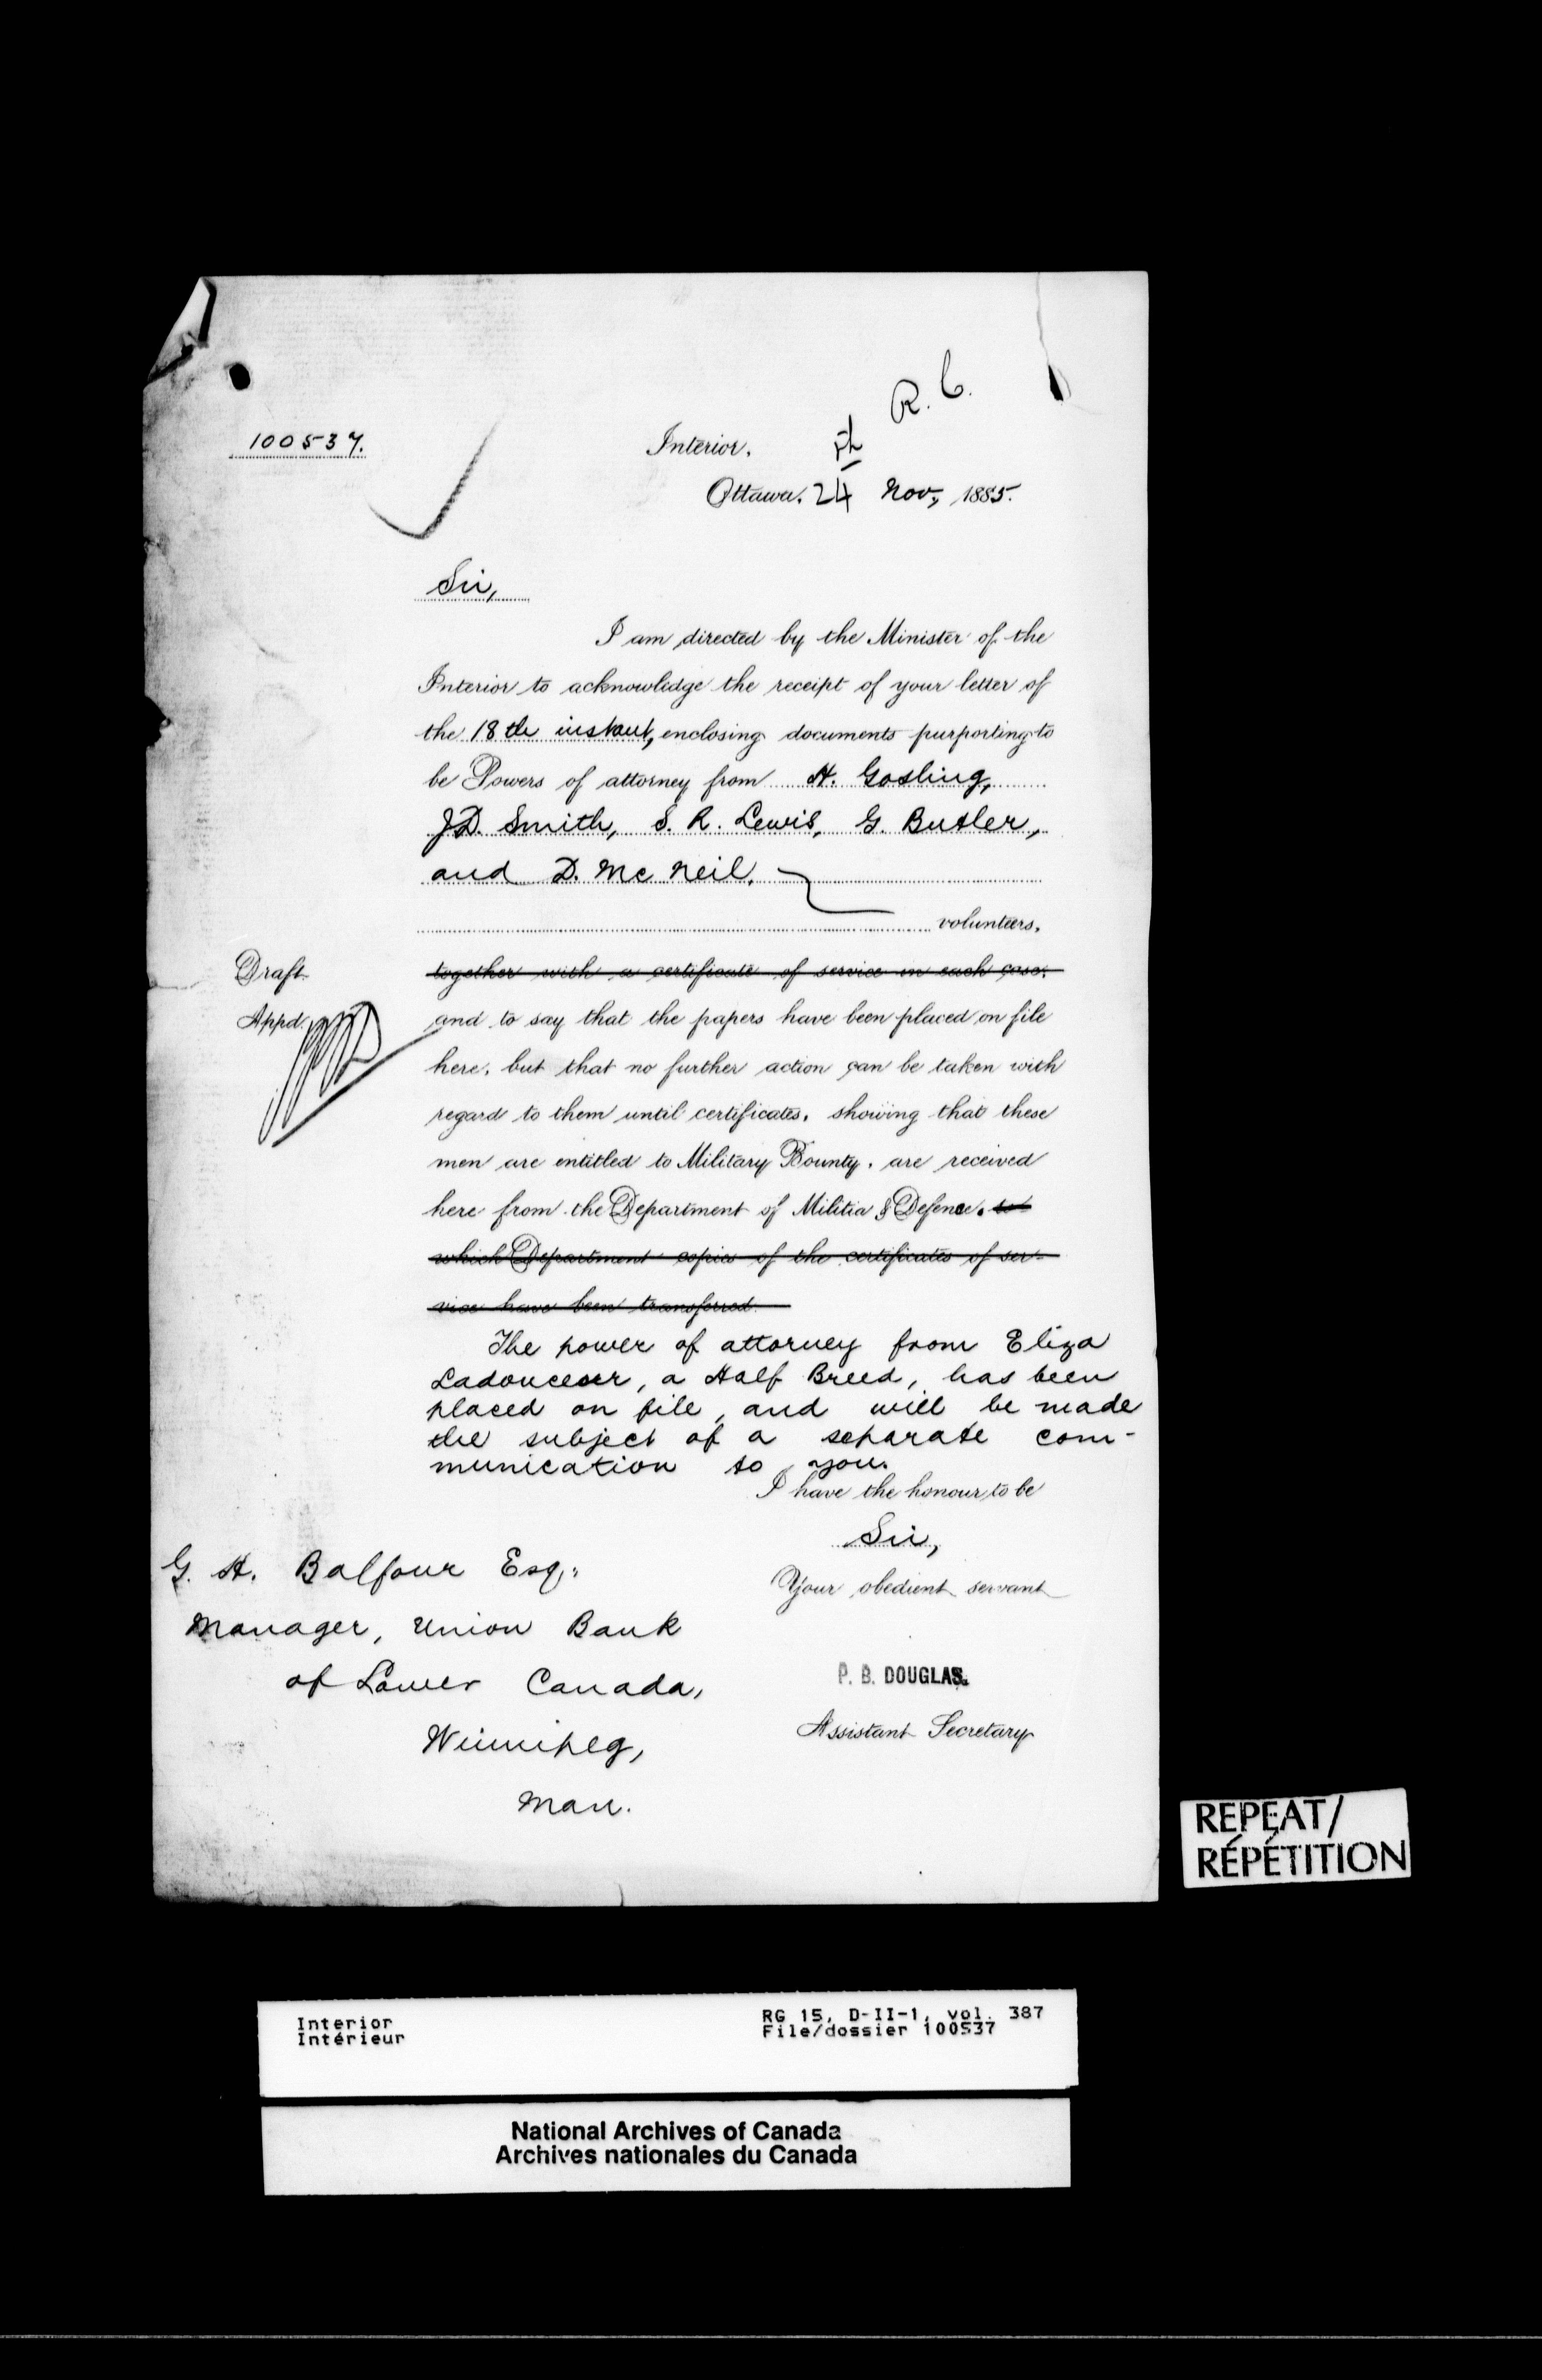 R. C.
100537.
Interior,
Ottawa, 24 Nov, 1885.
Sir,
I am directed by the Minister of the
Interior to acknowledge the receipt of your letter of
the 18th instant, enclosing documents purporting to
be Powers of attorney from H. Gosling,
J.D. Smith, S. R. Lewis, G. Butler,
and D. McNeil.
volunteers,
together with a certificate of service in each case,
Draft
Appd.
and to say that the papers have been placed on file
here, but that no further action can be taken with
regard to them until certificates, showing that these
men are entitled to Military Bounty, are received
here from the Department of Militia & Defence. to
which Department copies of the certificates of ser-
vice have been transferred.
The power of attorney from Eliza
Ladouceur, a Half Breed, has been
placed on file, and will be made
the subject of a separate com-
munication to you.
I have the honour to be
Sir,
Your obedient servant
P. B. DOUGLAS.
Assistant Secretary
G. H. Balfour Esq.
Manager, Union Bank
of Lower Canada,
Winnipeg,
Man.
REPEAT/
RÉPÉTITION
Interior
Intérieur
RG 15, D-II-1, vol. 387
File/dossier 100537
National Archives of Canada
Archives nationales du Canada